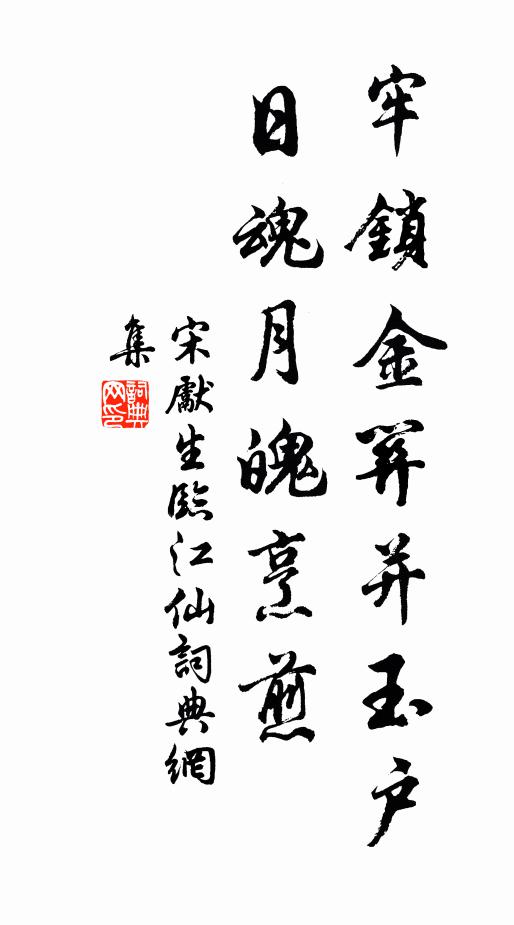 牢鎖金關并玉户
日魂月魄烹煎
宋獻生臨江仙詞典網
集
詞典网印